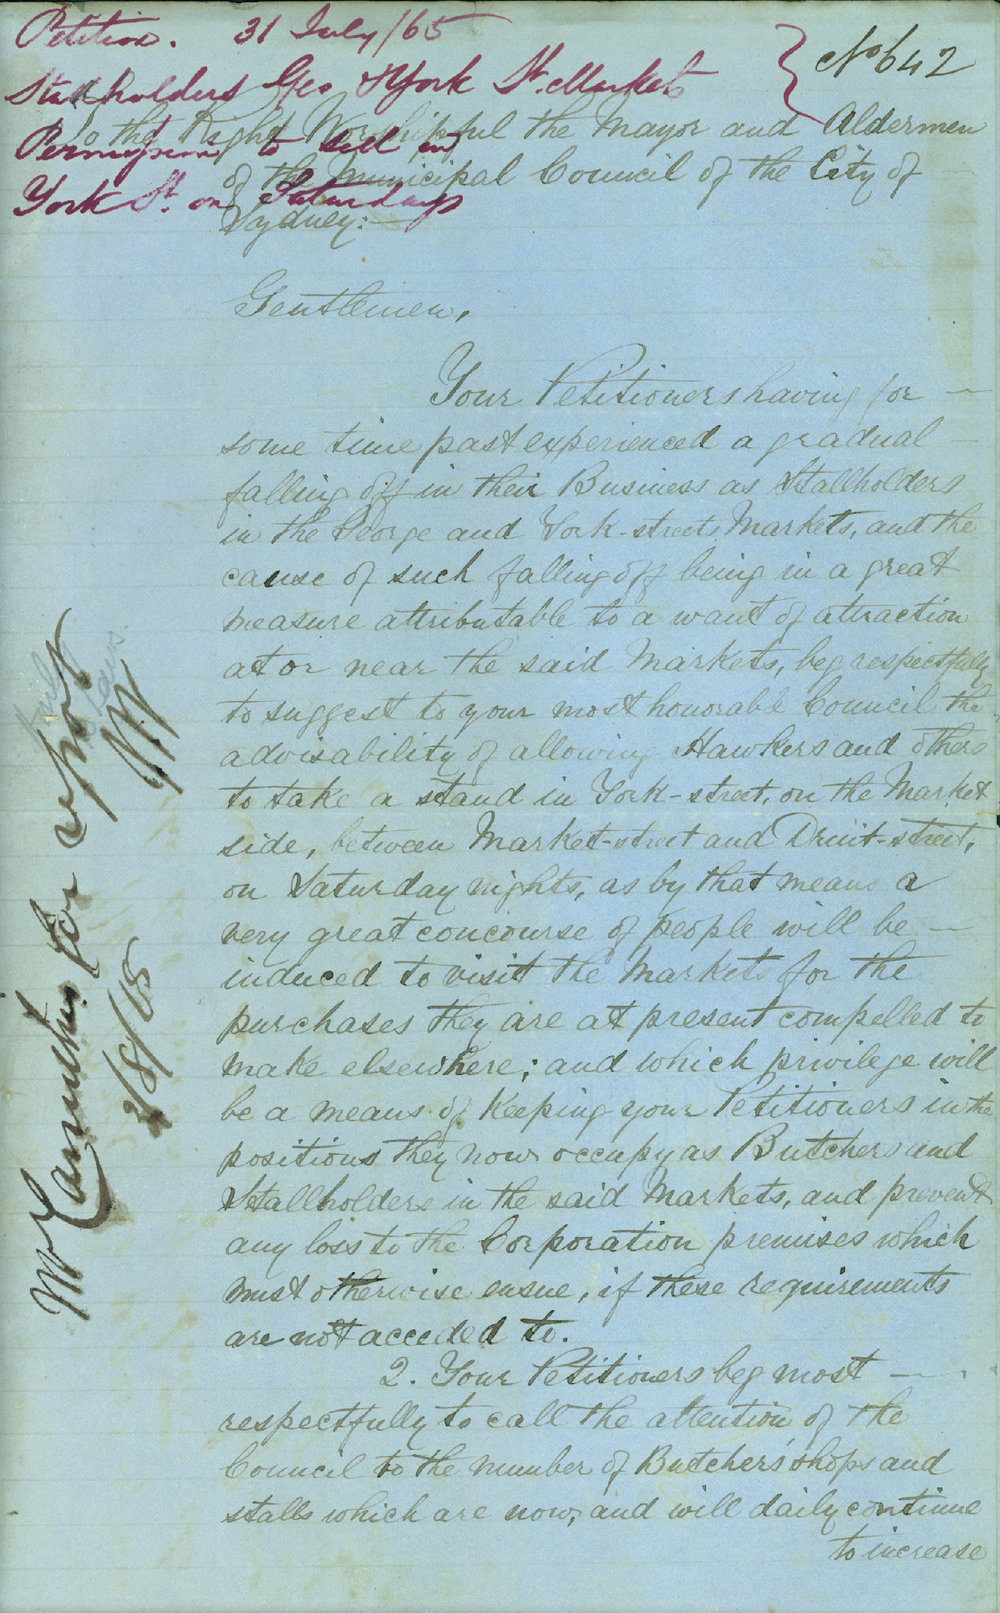 Petition. 31 July/65
Stallholders Geo & York St. Markets
Permission to sell in
York St. on Saturdays
No 642
To the Right Worshipful the Mayor and Aldermen
of the Municipal Council of the City of
Sydney:—
Gentlemen,
Your Petitioners having for —
some time past experienced a gradual
falling off in their Business as Stallholders
in the George and York-streets Markets, and the
cause of such falling off being in a great
measure attributable to a want of attraction
at or near the said Markets, beg respectfully
to suggest to your most honorable Council the
advisability of allowing Hawkers and others
to take a stand in York-street, on the Market
side, between Market-street and Druitt-street,
on Saturday nights, as by that means a
very great concourse of people will be —
induced to visit the Markets for the
purchases they are at present compelled to
make elsewhere; and which privilege will
be a means of keeping your Petitioners in the
positions they now occupy as Butchers and
Stallholders in the said Markets, and prevent
any loss to the Corporation premises which
must otherwise ensue, if these requirements
are not acceded to.
2. Your Petitioners beg most —
respectfully to call the attention of the
Council to the number of Butchers' shops and
stalls which are now, and will daily continue
to increase
Mr Carruthers for report
2/8/65